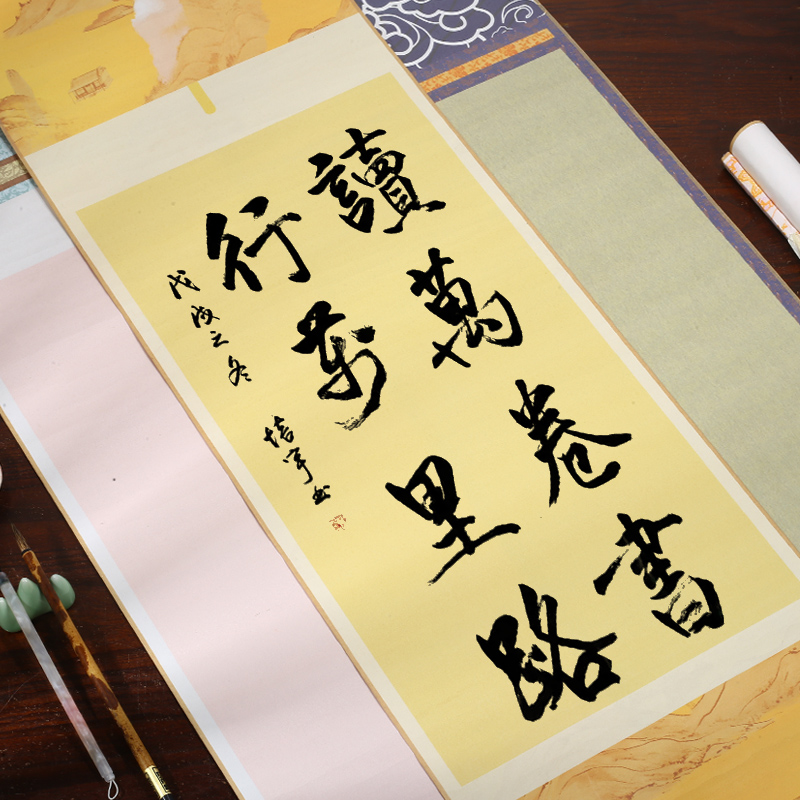 讀萬卷書
行萬里路
戊戌之冬
培宇書